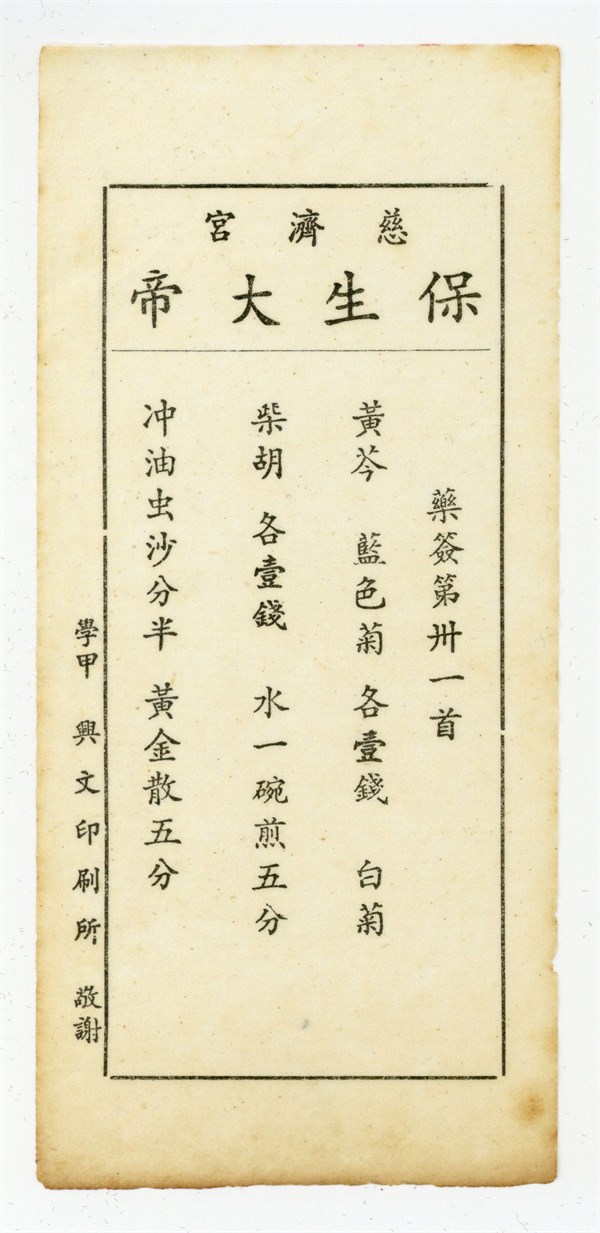 慈濟宮
保生大帝
藥簽第卅一首
黃芩 藍色菊各壹錢 白菊
柴胡 各壹錢 水一碗煎五分
冲油虫沙分半 黃金散五分
學甲 興文印刷所 敬謝